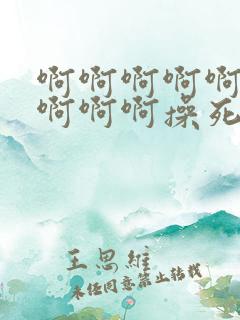 啊啊啊啊啊
啊啊啊操死
王思维
未经同意禁止转载